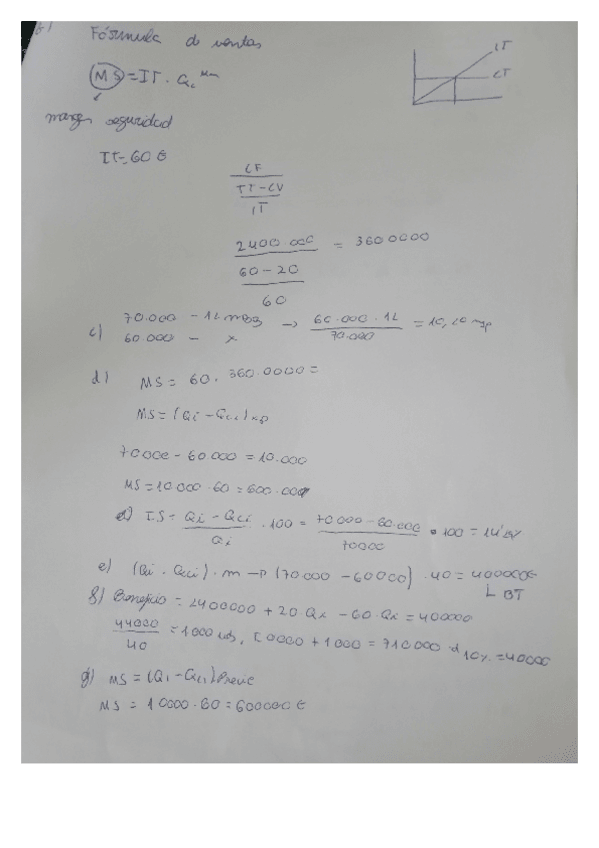 b)
Fórmula d ventas
MS = IT · Qc
IT
CT
margen seguridad
IT = 60 €
CF
IT - CV
IT
2400.000 = 3600000
60 - 20
60
c) 70.000 - 12 → 60.000 · 12 = 10,
60.000 - x
70.000
d) MS = 60 · 360.0000 =
MS = (Qi - Qci) xp
70000 - 60.000 = 10.000
MS = 10.000 · 60 = 600.000
d) I.S = Qi - Qci · 100 = 70000 - 60.000 · 100 = 14'
Qi
70000
e) (Qi · Qci) · m → (70.000 - 60000) · 40 = 400000€
BT
f) Beneficio = 2400000 + 20 · Qi - 60 · Qi = 400000
44000 = 1000 uds, 70000 + 1000 = 710000 10%. = 40000
40
g) MS = (Qi - Qci)
MS = 10000 · 60 = 600000 €